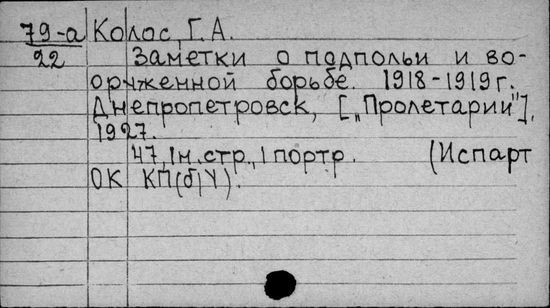 79-а Колос, Г. А.
22 Заметки о подпольи и во-
оруженной борьбе. 1918-1919 г.
Днепропетровск, [„Пролетарий"],
1927.
47, 1 н. стр., 1 портр. (Испарт
ОК КП(б)У).